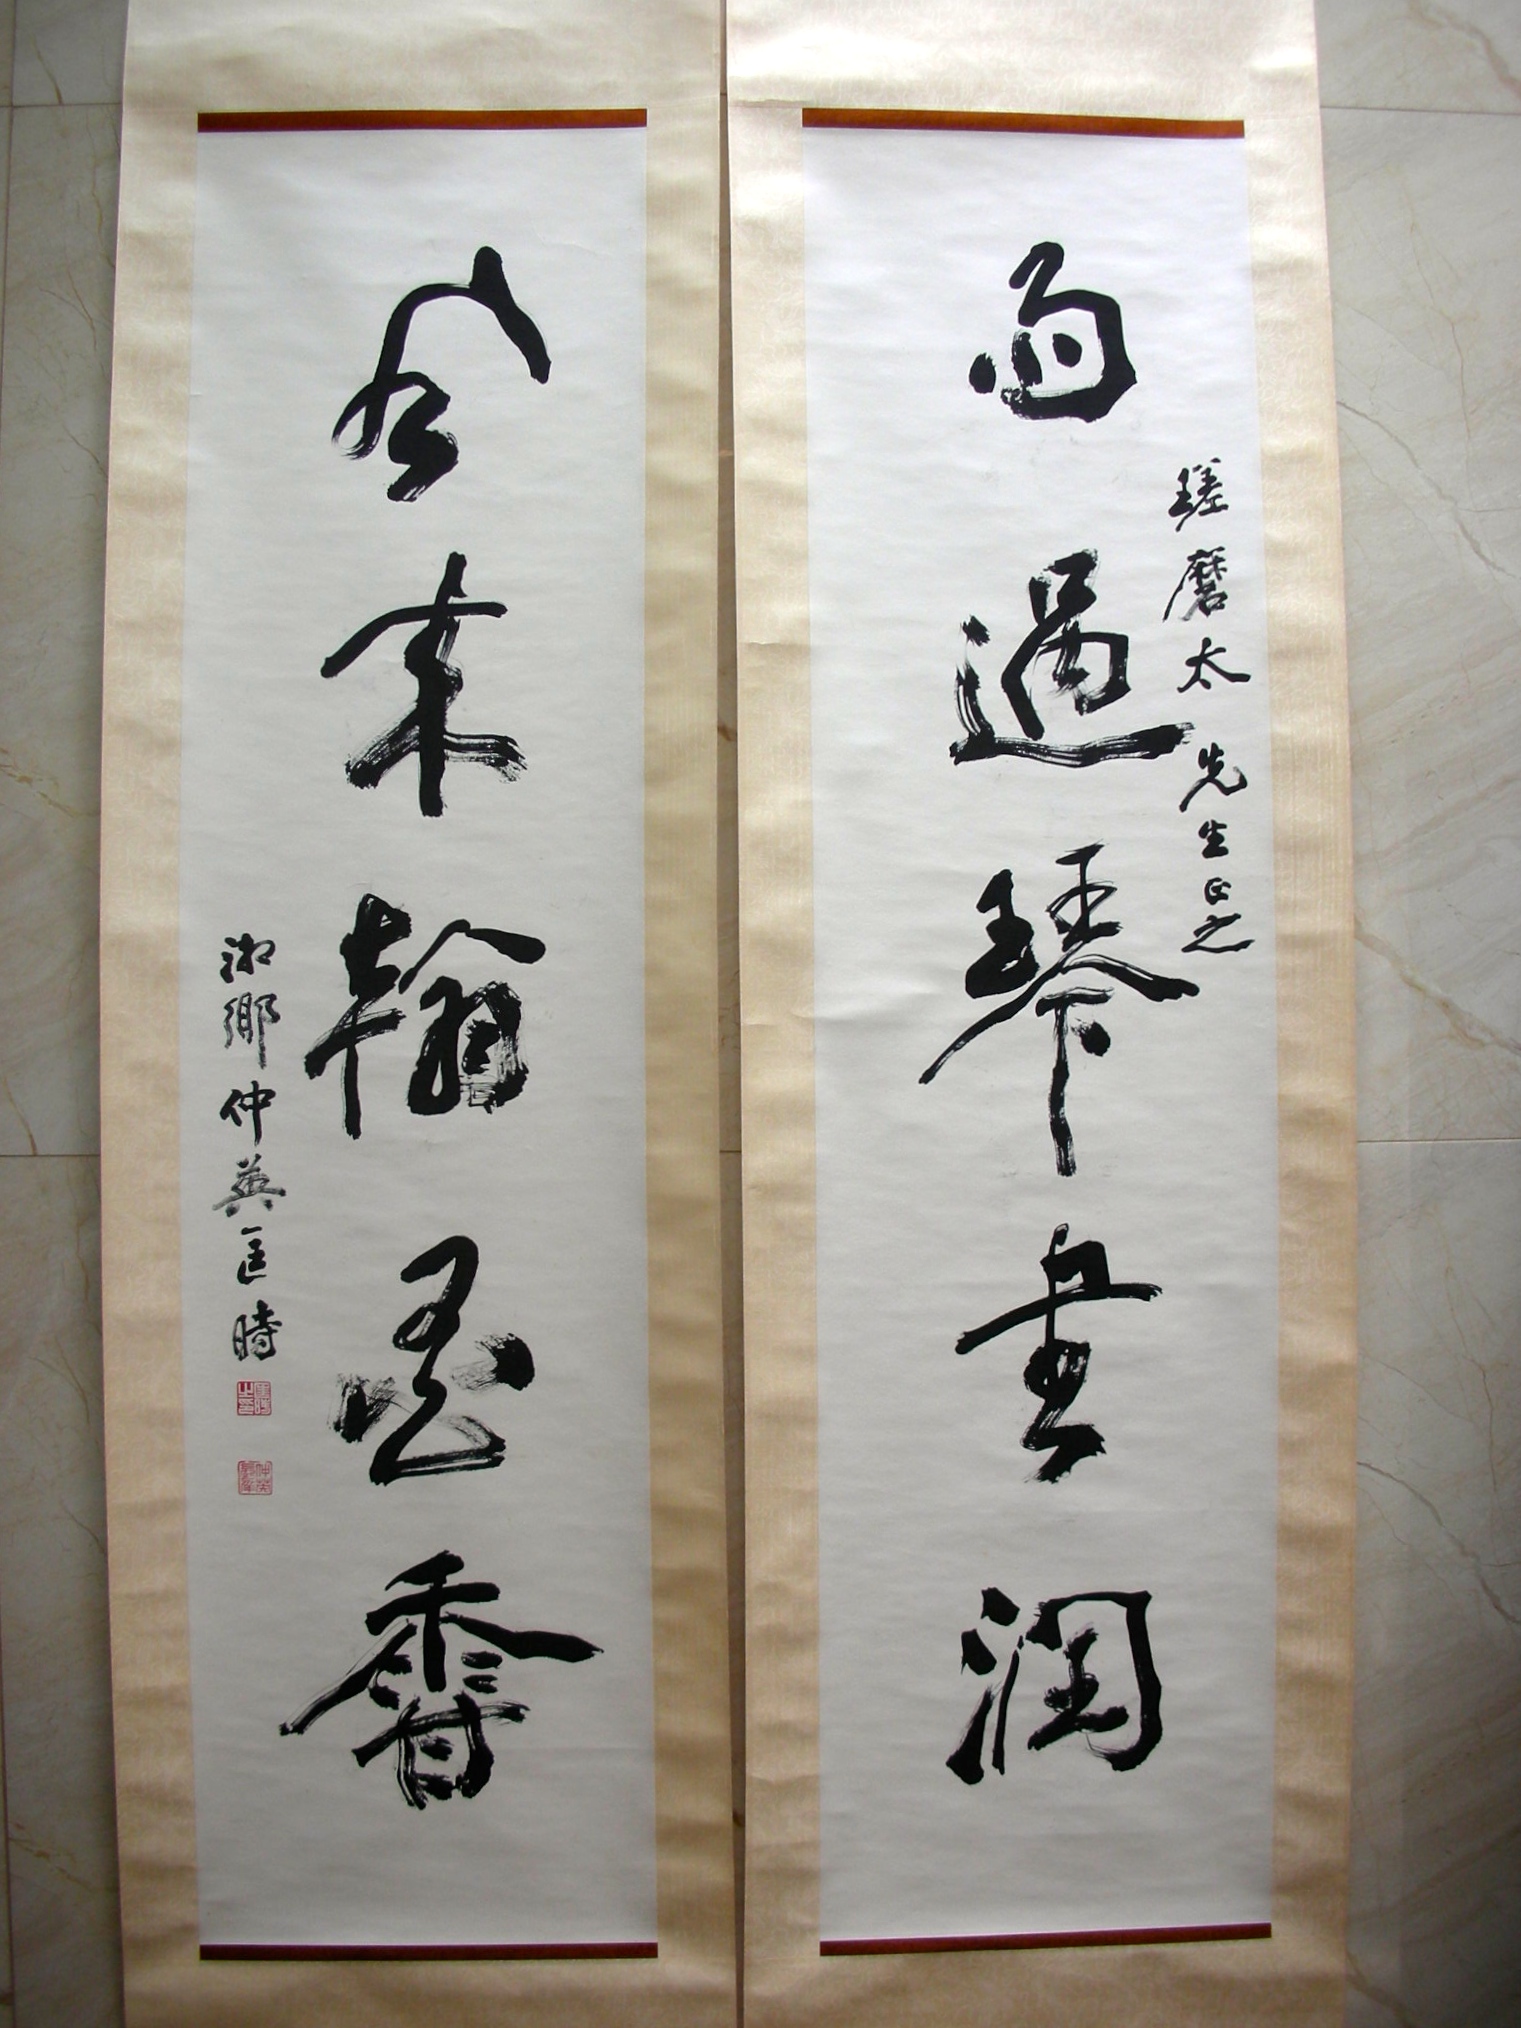 雨過琴書潤
瑳磨太先生正之
風來翰墨香
湘鄉仲英匡時